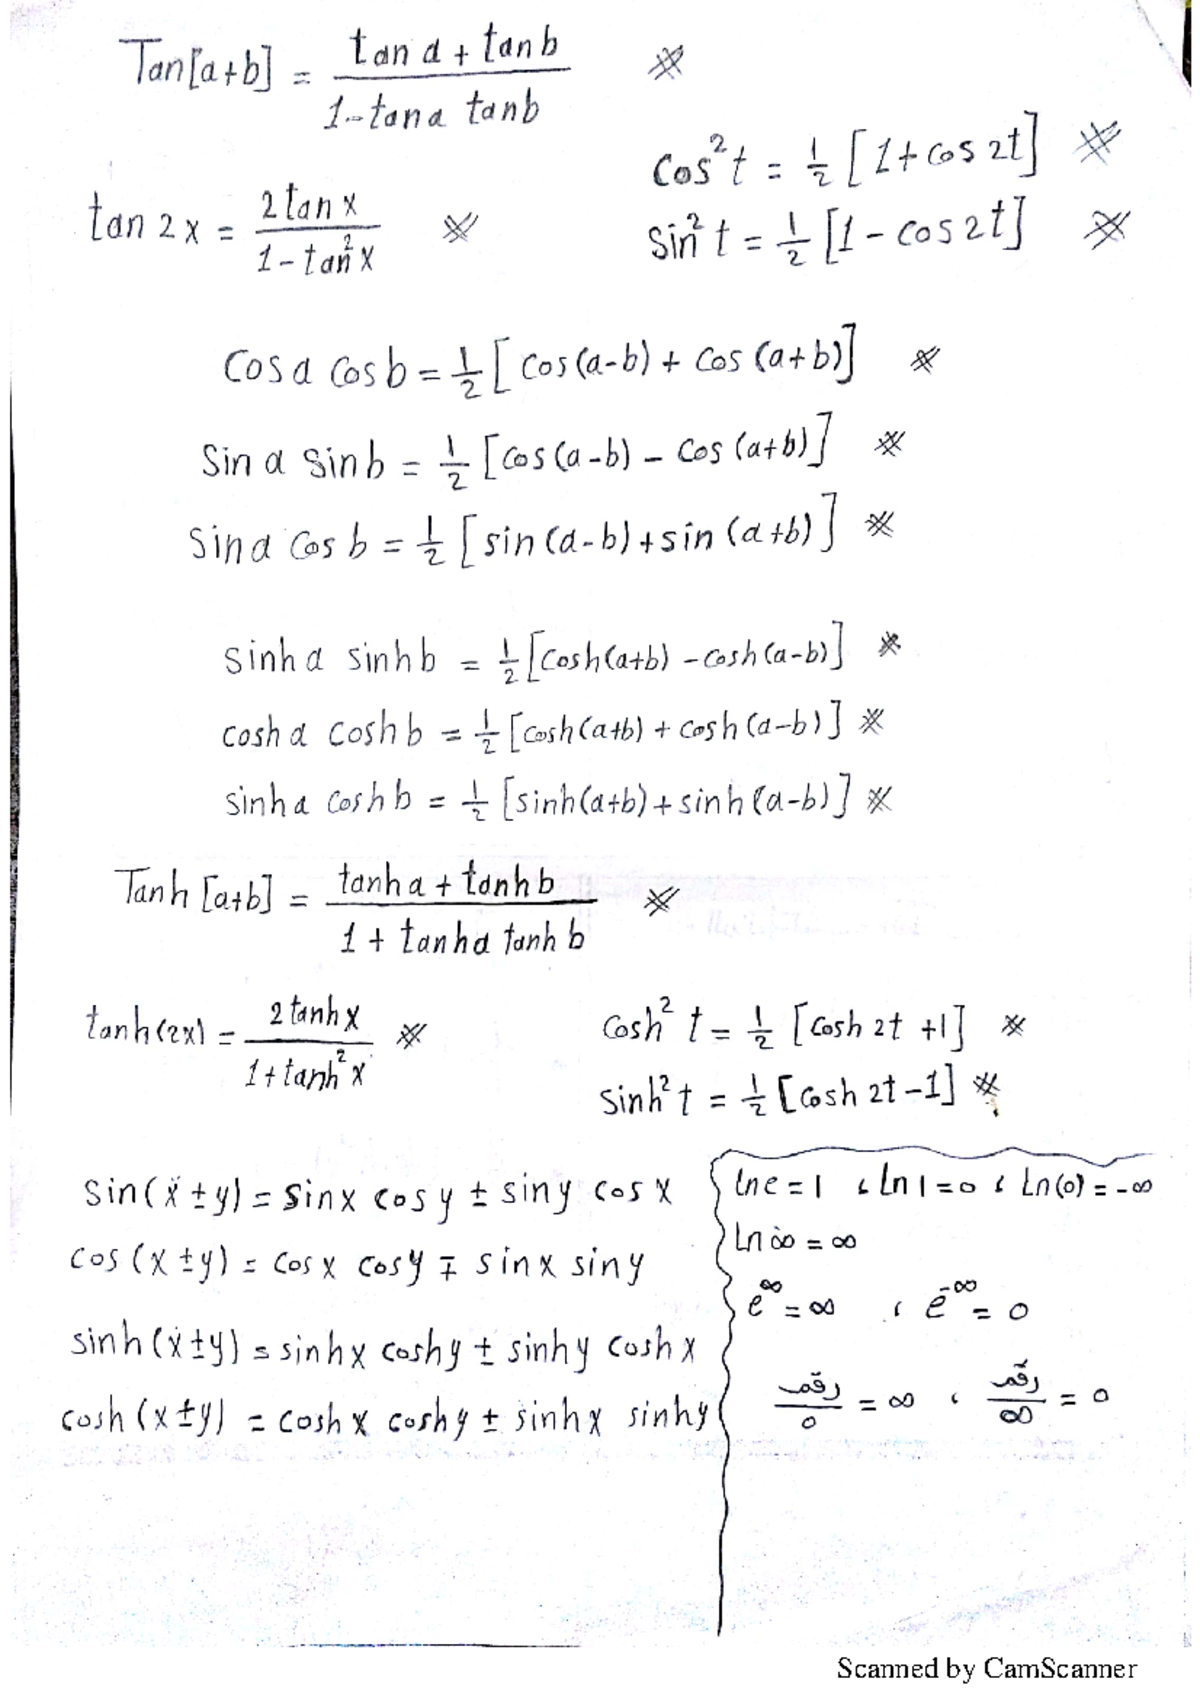 Tan[a+b] = (tan a + tan b) / (1 - tan a tan b) ※
cos² t = 1/2 [1 + cos 2t] ※
tan 2x = 2 tan x / (1 - tan² x) ※
sin² t = 1/2 [1 - cos 2t] ※
cos a cos b = 1/2 [cos(a-b) + cos(a+b)] ※
sin a sin b = 1/2 [cos(a-b) - cos(a+b)] ※
sin a cos b = 1/2 [sin(a-b) + sin(a+b)] ※
sinh a sinh b = 1/2 [cosh(a+b) - cosh(a-b)] ※
cosh a cosh b = 1/2 [cosh(a+b) + cosh(a-b)] ※
sinh a cosh b = 1/2 [sinh(a+b) + sinh(a-b)] ※
Tanh [a+b] = (tanh a + tanh b) / (1 + tanh a tanh b) ※
tanh(2x) = 2 tanh x / (1 + tanh² x) ※
cosh² t = 1/2 [cosh 2t + 1] ※
sinh² t = 1/2 [cosh 2t - 1] ※
sin(x ± y) = sin x cos y ± sin y cos x
cos(x ± y) = cos x cos y ∓ sin x sin y
sinh(x ± y) = sinh x cosh y ± sinh y cosh x
cosh(x ± y) = cosh x cosh y ± sinh x sinh y
ln e = 1 ، ln 1 = 0 ، Ln(0) = -∞
Ln ∞ = ∞
e^∞ = ∞ ، e^-∞ = 0
رقم / 0 = ∞ ، رقم / ∞ = 0
Scanned by CamScanner